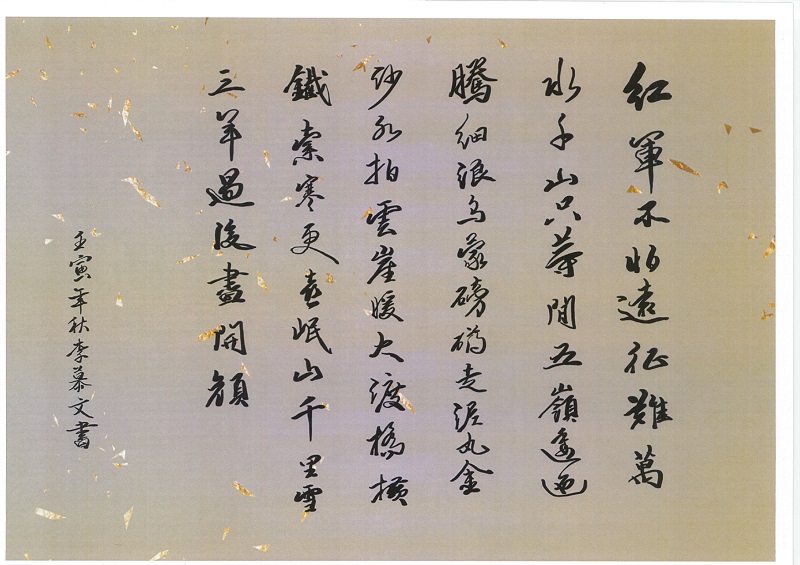 紅軍不怕遠征難萬
水千山只等間五嶺逶迤
騰細浪烏蒙磅礴走泥丸金
沙水拍雲崖暖大渡橋橫
鐵索寒更喜岷山千里雪
三軍過後盡開顏
壬寅年秋李慕文書